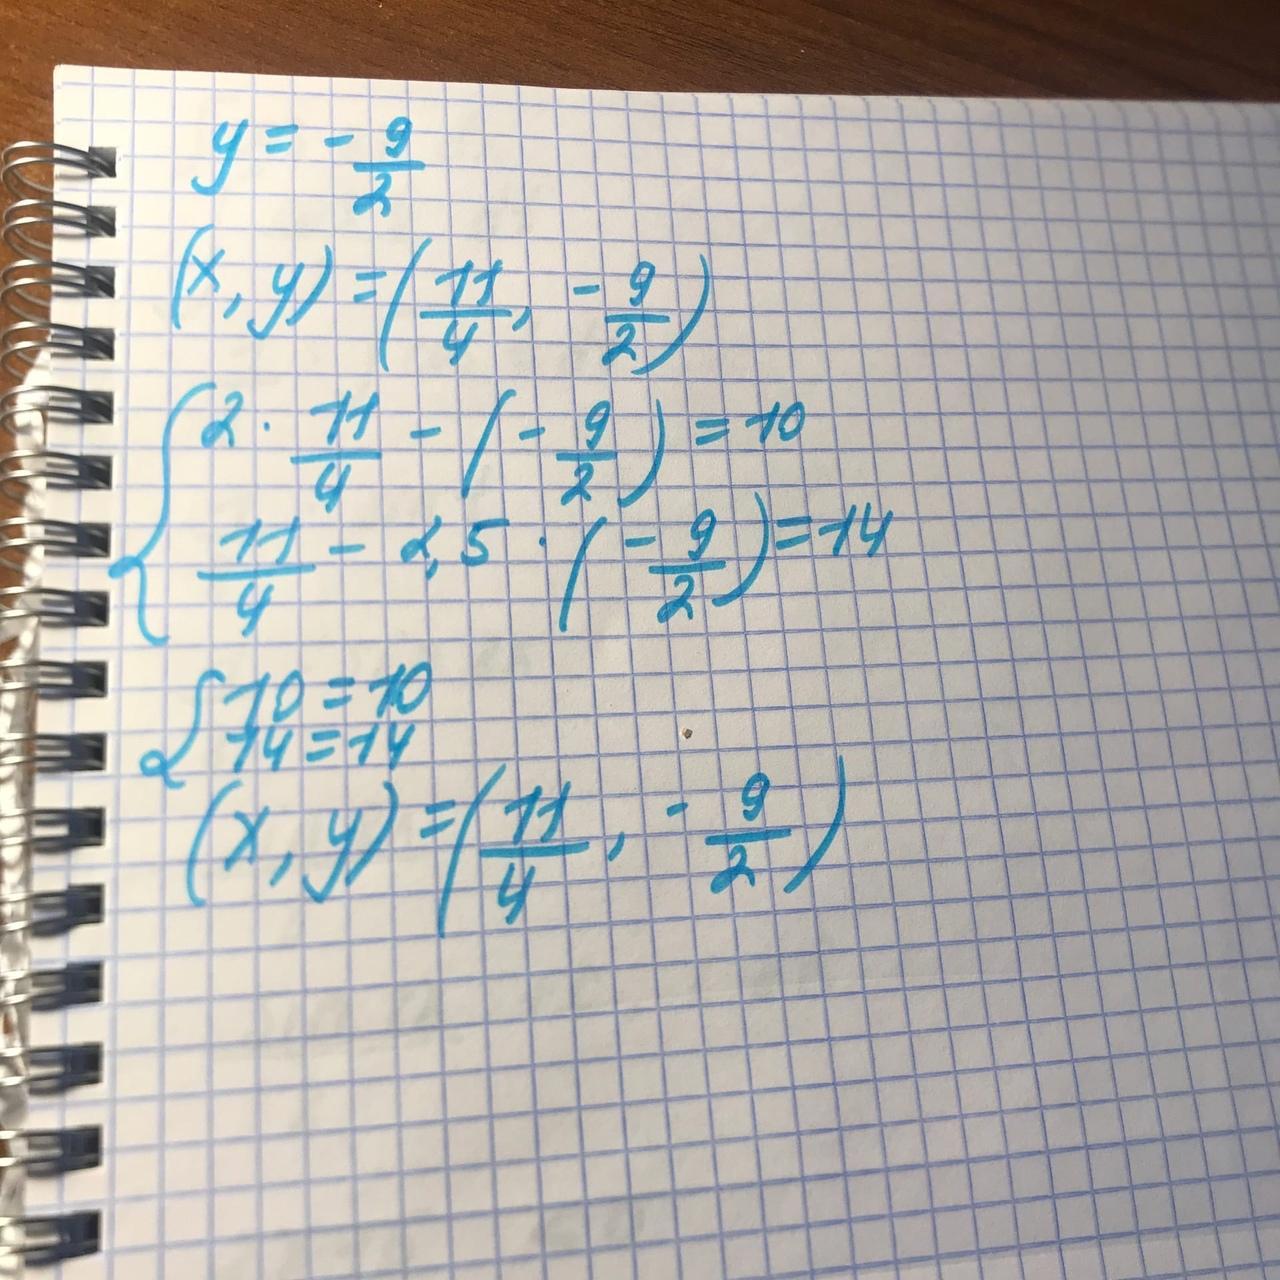 y = - 9/2
(x, y) = (11/4, - 9/2)
{ 2 · 11/4 - (- 9/2) = 10
11/4 - 2,5 · (- 9/2) = 14
{ 10 = 10
14 = 14
(x, y) = (11/4, - 9/2)